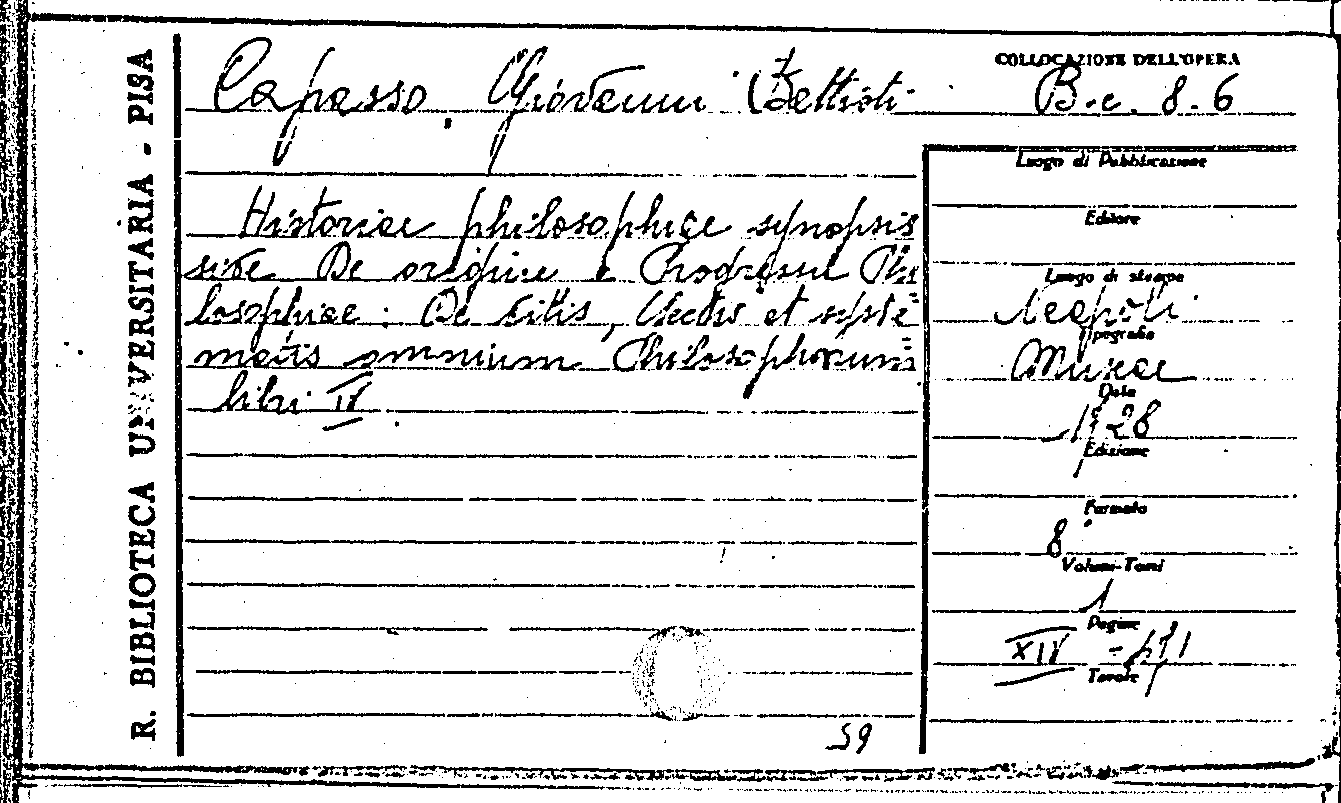 R. BIBLIOTECA UNIVERSITARIA - PISA
Capasso, Giovanni Battista
COLLOCAZIONE DELL'OPERA
B.c. 8.6
Historiae philosophiae synopsis
sive De origine e Progressu Phi
losophiae: De vitis, et syste=
matis omnium Philosophorum
libri IV.
Luogo di Pubblicazione
Editore
Luogo di stampa
Neapoli
Tipografia
Muzae
Data
1728
Edizione
Formato
8°
Volumi-Tomi
1
Pagine
XIV -
Tavole
59